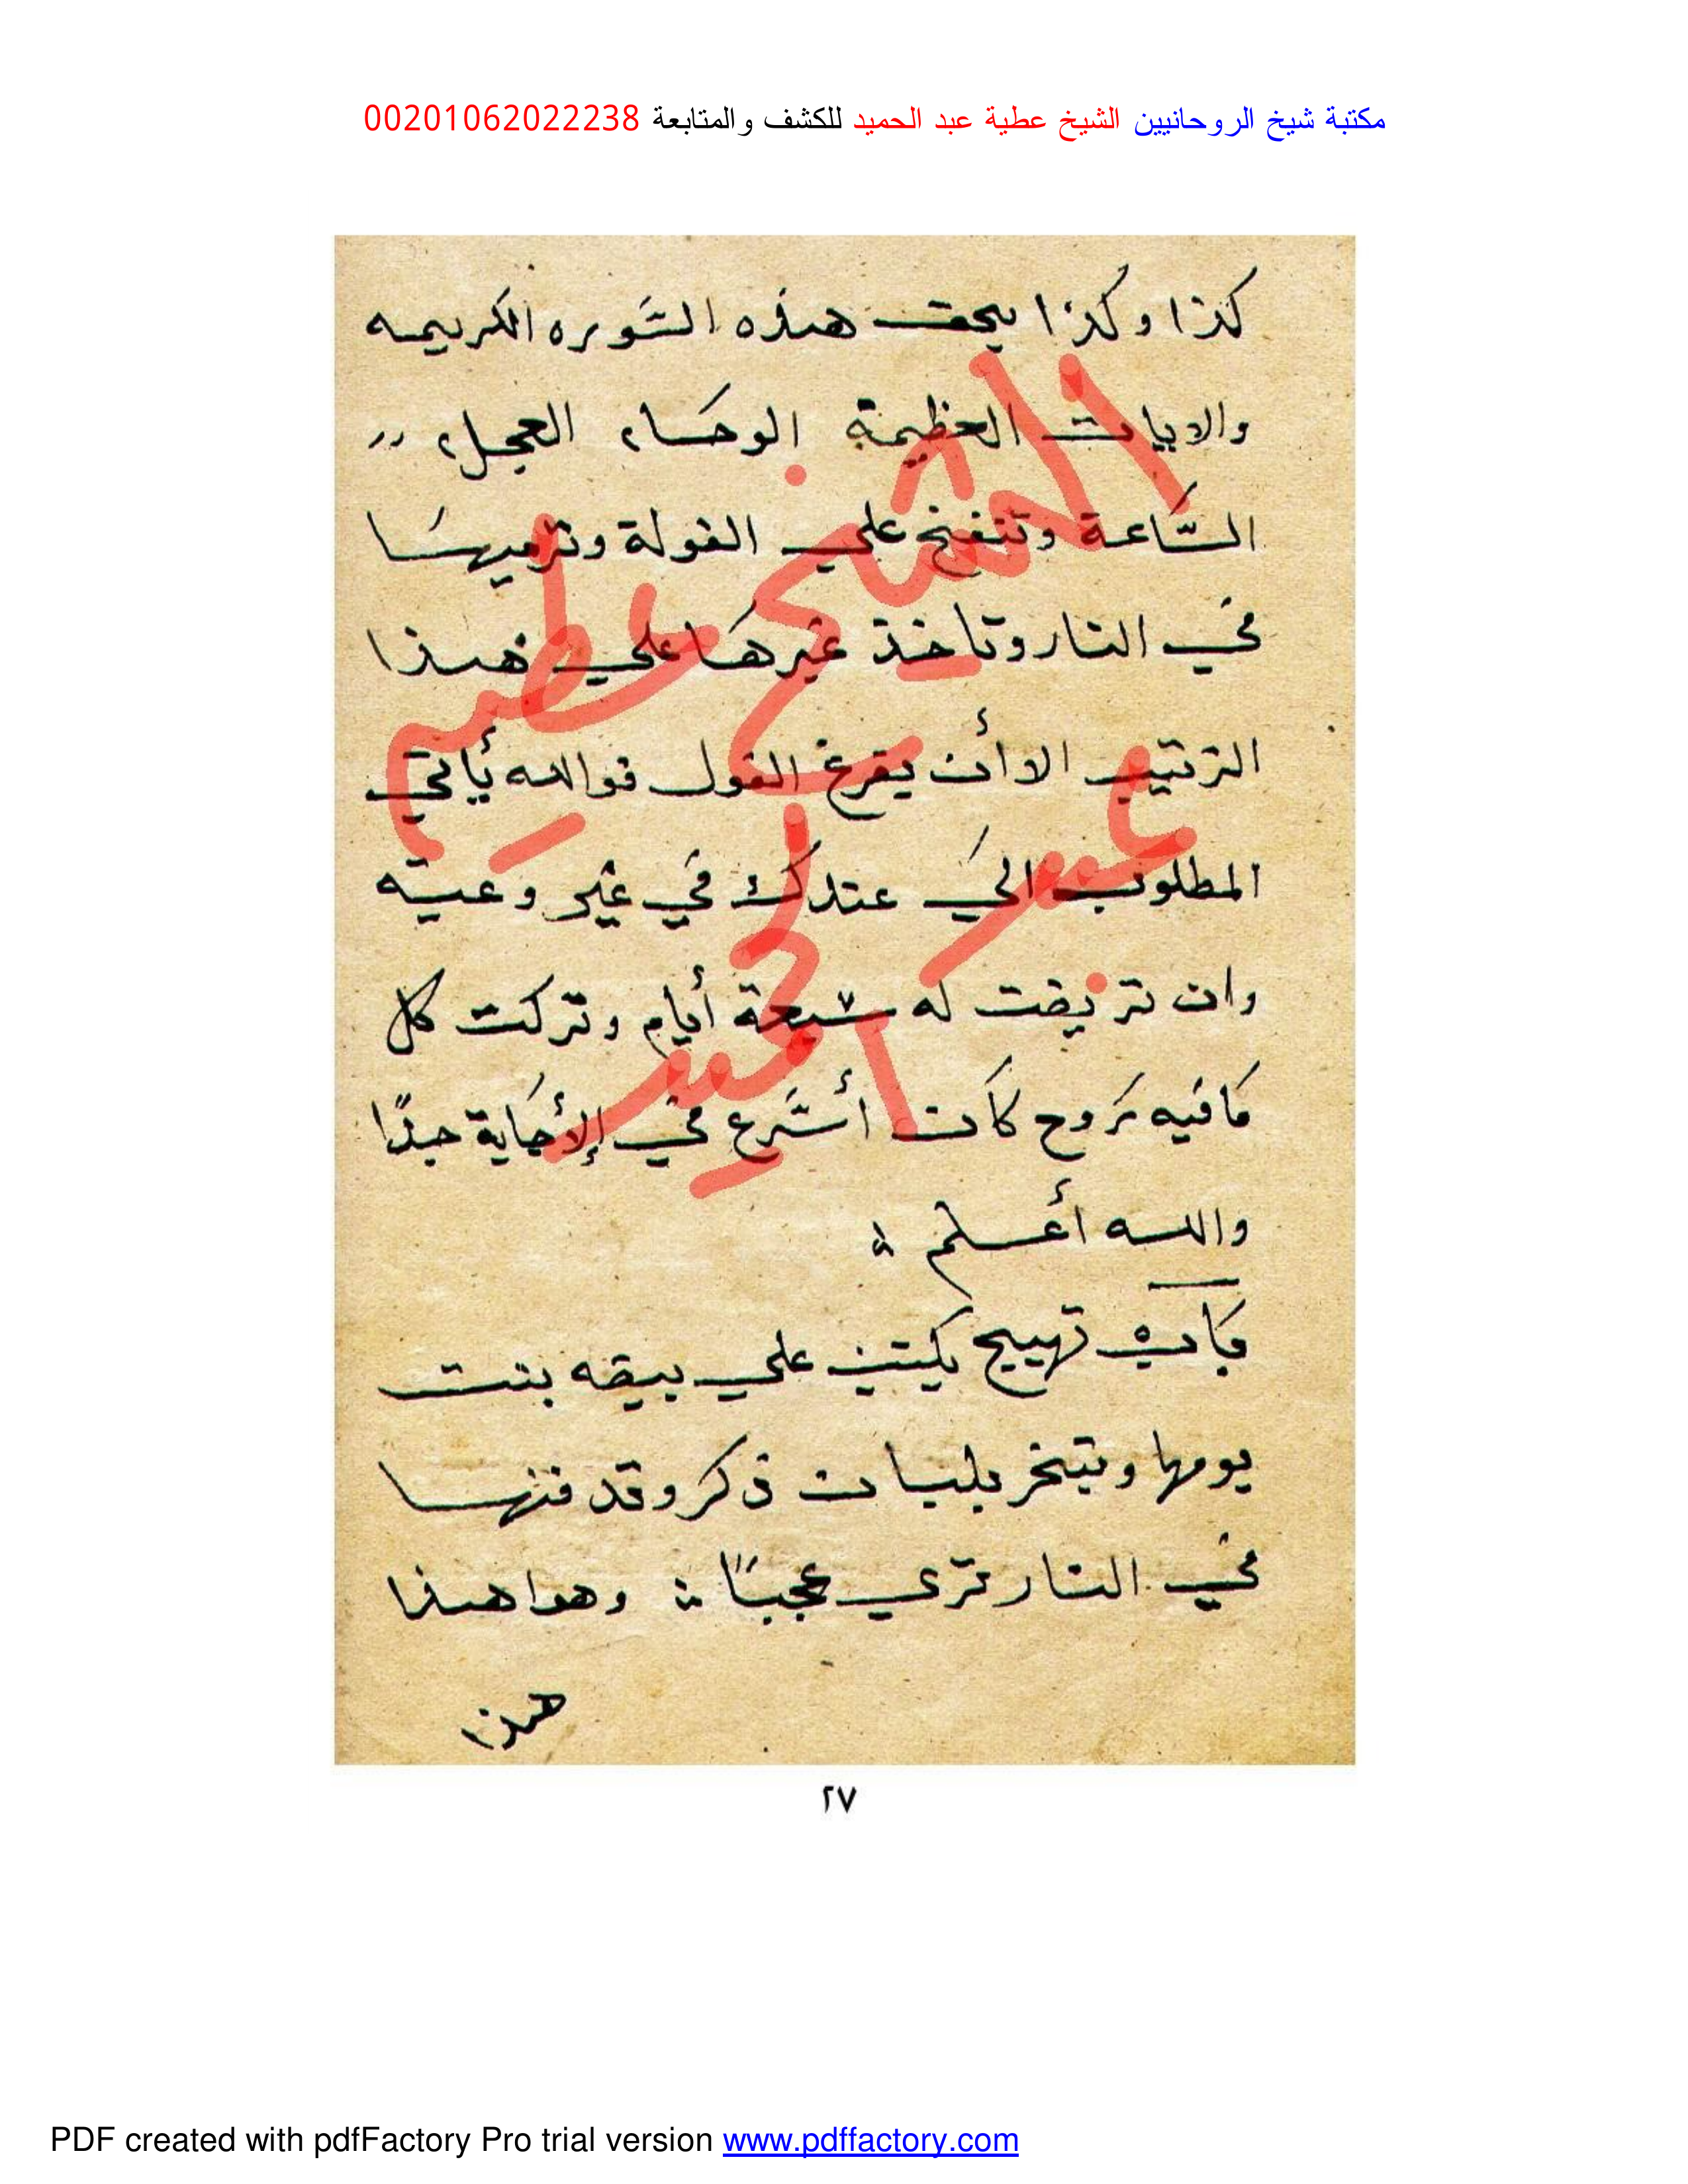 مكتبة شيخ الروحانيين الشيخ عطية عبد الحميد للكشف والمتابعة 00201062022238
كذا وكذا بحق هذه السّوره الكريمه
والايات العظيمة الوحَا٢ العجل٢
السّاعة وتنفخ علي الفولة وترميهسَا
في النار وتاخذ غيرها علي هذا
الترتيب الا أن يفرغ الفول فوالله يأتي
المطلوب الي عندك في غير وعيه
وان تريضت له سبعة أيام وتركت كل
مافيه روح كان أسرع في الإجابة جدًا
والله أعلم
باب تهييج يكتب علي بيضه بنت
يومها وتبخر بلبان ذكر وتدفنها
في النار تري عجبًا وهوا هذا
هذا
الشيخ عطيه
عبد
الحميد
٢٧
PDF created with pdfFactory Pro trial version www.pdffactory.com